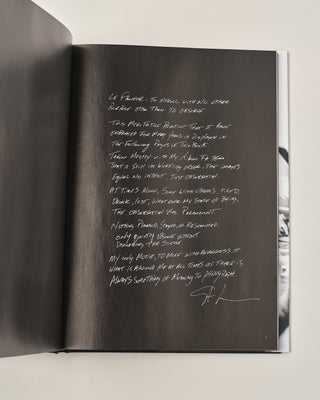 LE FLANEUR: TO STROLL WITH NO OTHER
PURPOSE OTHER THAN TO OBSERVE
THIS MEDITATIVE PRACTICE THAT I HAVE
EMBRACED FOR MANY YEARS IS DISPLAYED IN
THE FOLLOWING PAGES OF THIS BOOK.
TAKEN MOSTLY WITH MY
THAT IS STILL IN WORKING ORDER, THE IMAGES
EQUAL NO INTENT, JUST OBSERVATION.
AT TIMES ALONE, SOME WITH OTHERS, TIRED,
DRUNK, LOST, WHAT EVER MY STATE OF BEING,
THE OBSERVATION WAS PARAMOUNT
NOTHING PLANNED, STAGED, OR RESEARCHED,
ONLY QUIETLY BEING WITHOUT
DISTURBING THE SCENE
MY ONLY MOTIVE, TO MOVE WITH AWARENESS OF
WHAT IS AROUND ME AT ALL TIMES AS THERE IS
ALWAYS SOMETHING OF MEANING TO PHOTOGRAPH